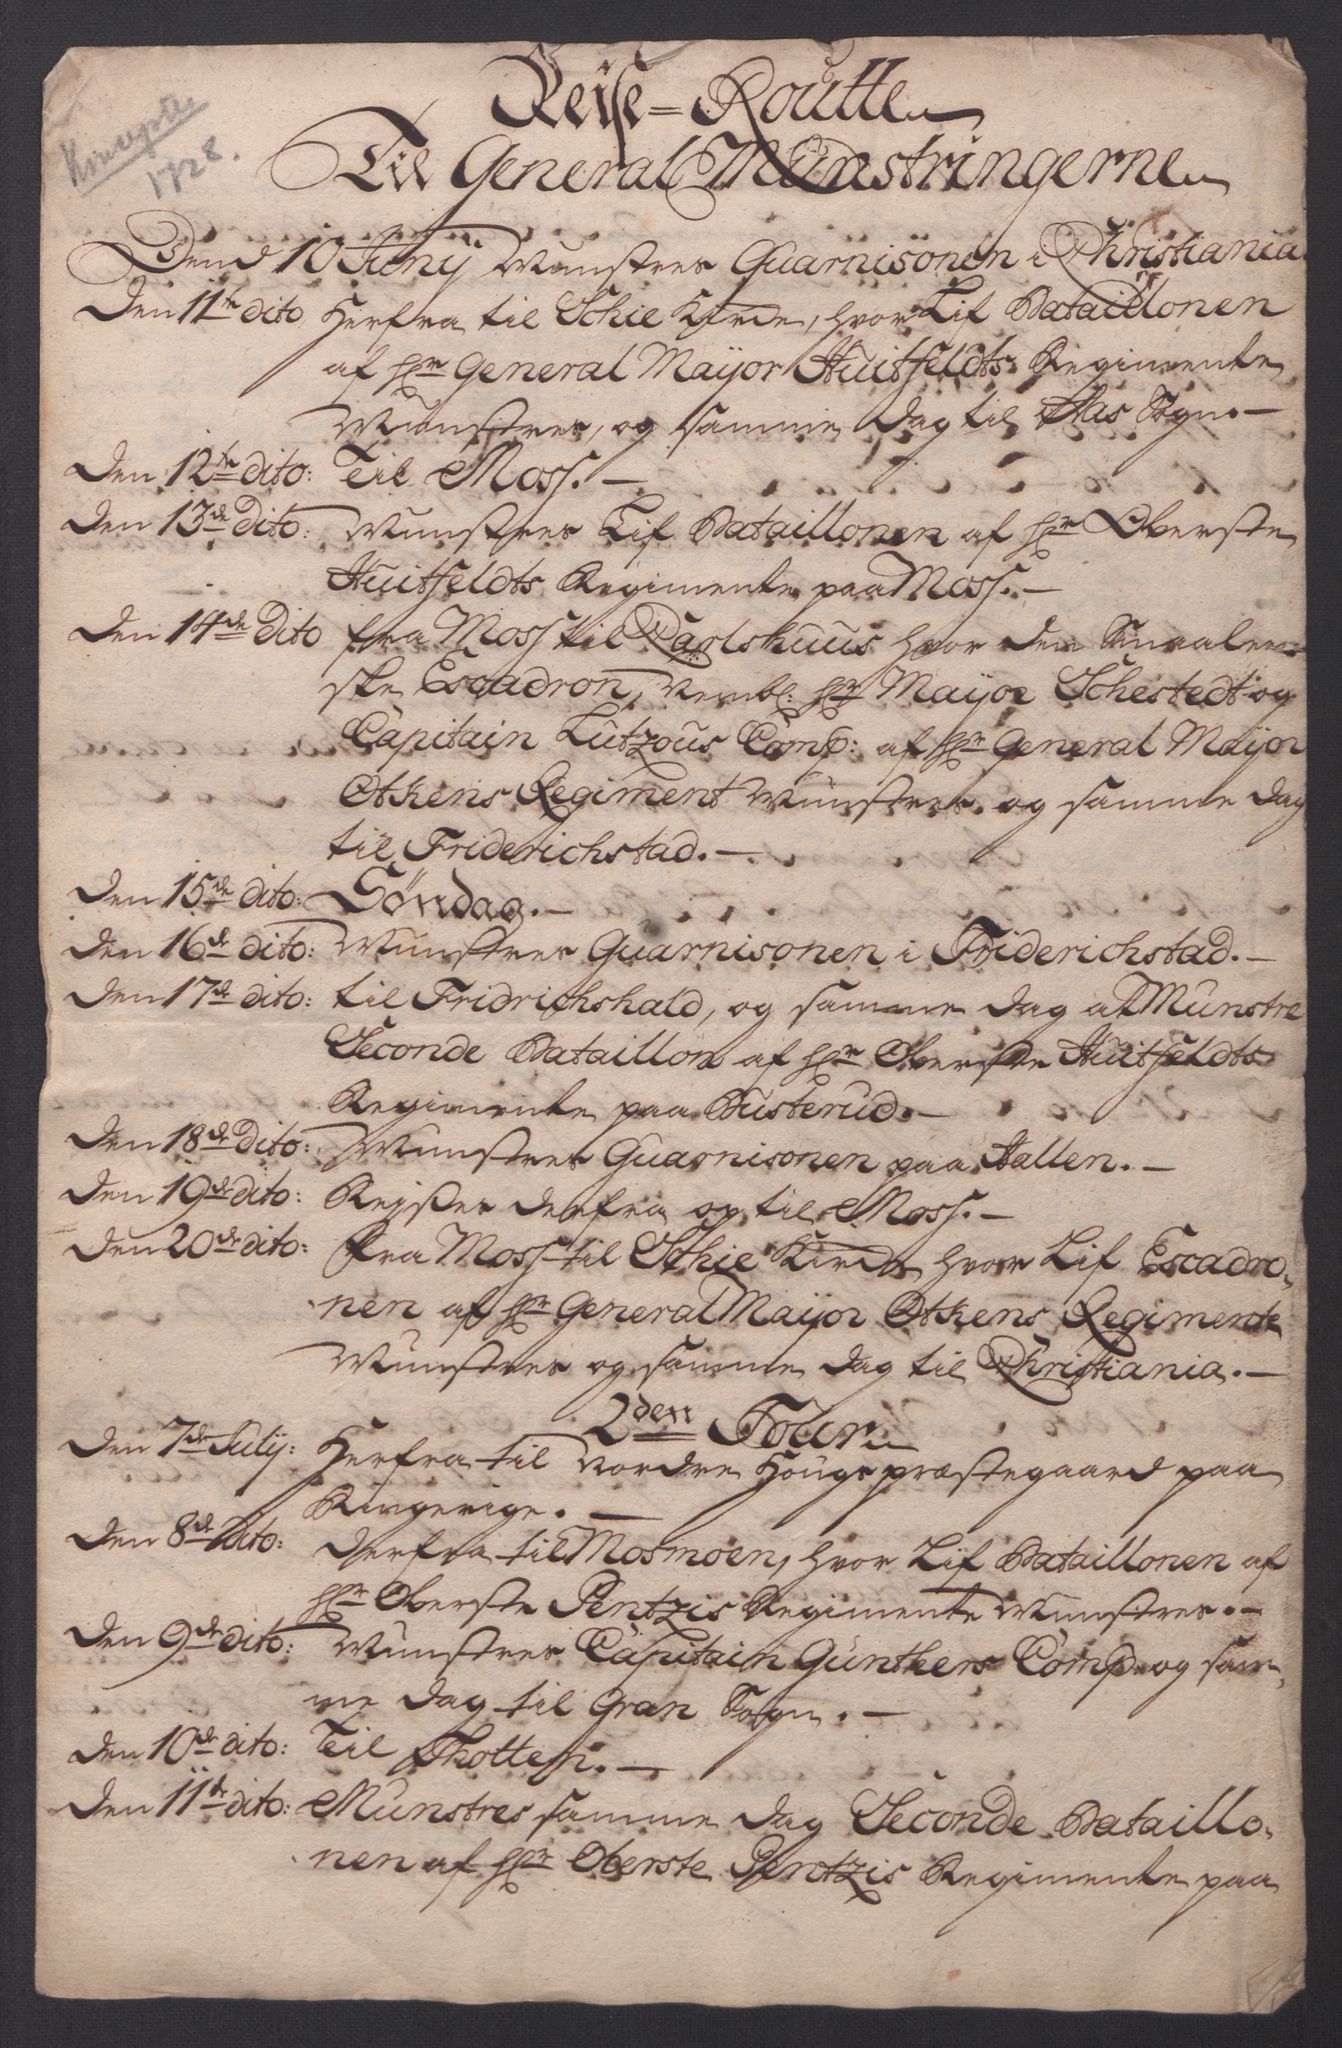 Koncepter
1728.
Reise-Routte
Til General Munstringerne
Dend 10 Junij Munstres Guarnisonen i Christiania
Den 11te dito Herfra til Schie Kirke, hvor Lif Bataillonen
af hr General Mayor Huitfeldts Regimente
Munstres, og samme dag til Aas Sogn.
Den 12te dito: Til Moss.
Den 13de dito: Munstres Lif Bataillonen af hr Oberste
Huitfeldts Regimente paa Moss.
Den 14de dito fra Moss til Carlshuus hvor den Smaalen-
ske Escadron, nembl: hr Mayor Schestedt og
Capitain Lutzous Comp: af hr General Mayor
Otkens Regiment Munstres og samme dag
til Friderichstad.
Den 15de dito: Söndag.
Den 16de dito: Munstres Guarnisonen i Friderichstad.
Den 17de dito: til Fridrichshald, og samme dag at Munstre
Seconde Bataillon af hr Oberste Huitfeldts
Regimente paa Busterud.
Den 18de dito: Munstres Guarnisonen paa Hallen.
Den 19de dito: Rejses derfra og til Moss.
Den 20de dito: Fra Moss til Schie Kirke hvor Lif Escadro-
nen af hr General Mayor Otkens Regimente
Munstres og samme dag til Christiania.
2den Tour
Den 7de Julij: Herfra til Nordre Hougs præstegaard paa
Ringerige.
Den 8de dito: derfra til Mosmoen, hvor Lif Bataillonen af
hr Oberste Pentzis Regimente Munstres.
Den 9de dito: Munstres Capitain Gunthers Comp: og sam-
me dag til Gran Sogn.
Den 10de dito: Til Thotten.
Den 11te dito: Munstres samme dag Seconde Bataillo-
nen af hr Oberste Pentzis Regimente paa